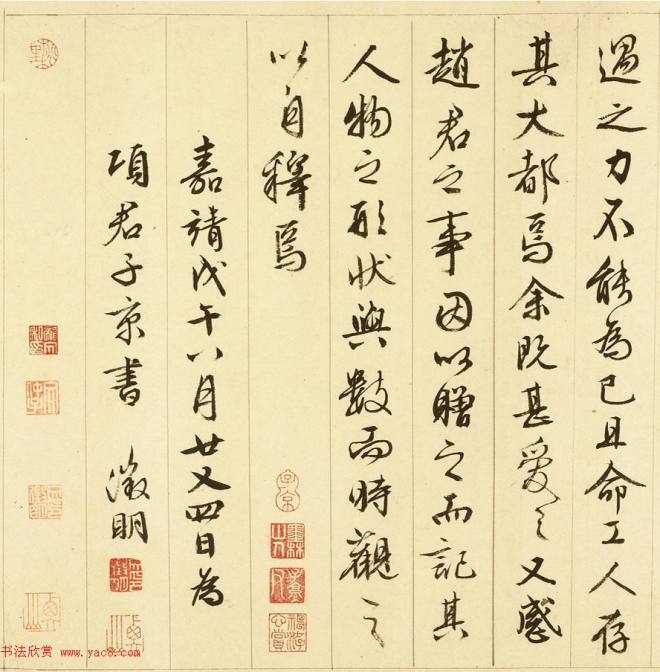 過之力不能為已且命工人存
其大都焉余既甚愛之又感
趙君之事因以贈之而記其
人物之形狀與數而時觀之
以自釋焉
嘉靖戊午八月廿又四日為
項君子京書 徵明
子京
墨林山人
书法欣赏 www.yac8.com